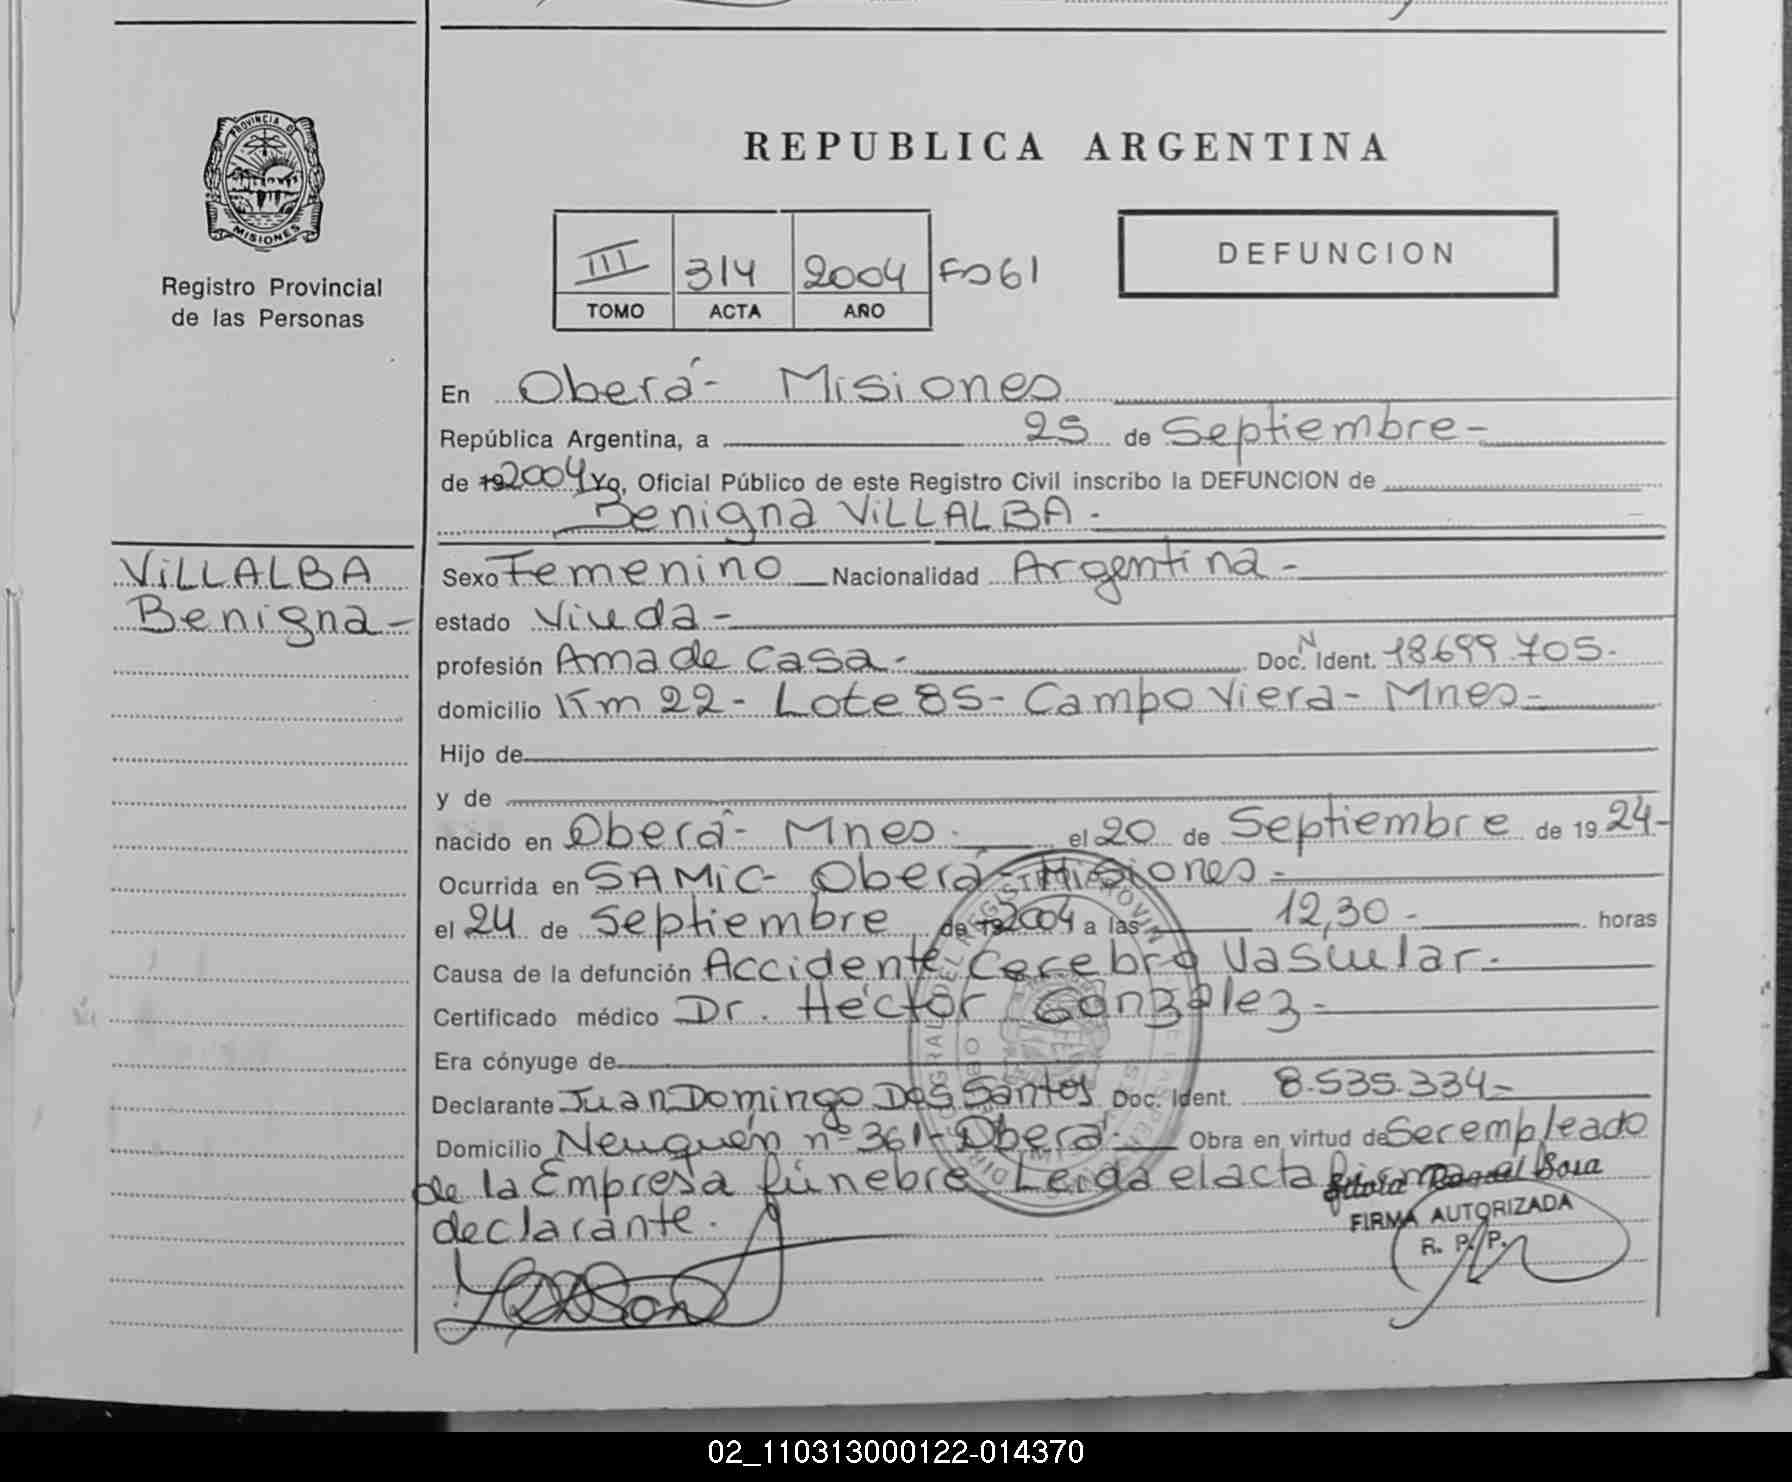 PROVINCIA D
MISIONES
Registro Provincial
de las Personas
REPUBLICA ARGENTINA
III 314 2004 Fo 61
TOMO ACTA AÑO
DEFUNCION
En Oberá- Misiones
República Argentina, a 25 de Septiembre-
de 192004 Yo, Oficial Público de este Registro Civil inscribo la DEFUNCION de
Benigna ViLLALBA-
ViLLALBA
Benigna-
Sexo Femenino Nacionalidad Argentina-
estado Viuda-
profesión Ama de Casa- Doc. N Ident. 18.699.705.
domicilio Km 22- Lote 85- Campo Viera- Mnes-
Hijo de
y de
nacido en Oberá- Mnes. el 20 de Septiembre de 1924-
Ocurrida en SAMiC- Oberá- Misiones-
el 24 de Septiembre de 192004 a las 12,30- horas
Causa de la defunción Accidente Cerebro Vascular.
Certificado médico Dr. Héctor González-
Era cónyuge de
Declarante Juan Domingo Dos Santos Doc. Ident. 8.535.334-
Domicilio Neuquén nº 361- Oberá- Obra en virtud de Ser empleado
de la Empresa fúnebre Leida el acta firma el
declarante.
Sosa
FIRMA AUTORIZADA
R. P. P.
02_110313000122-014370